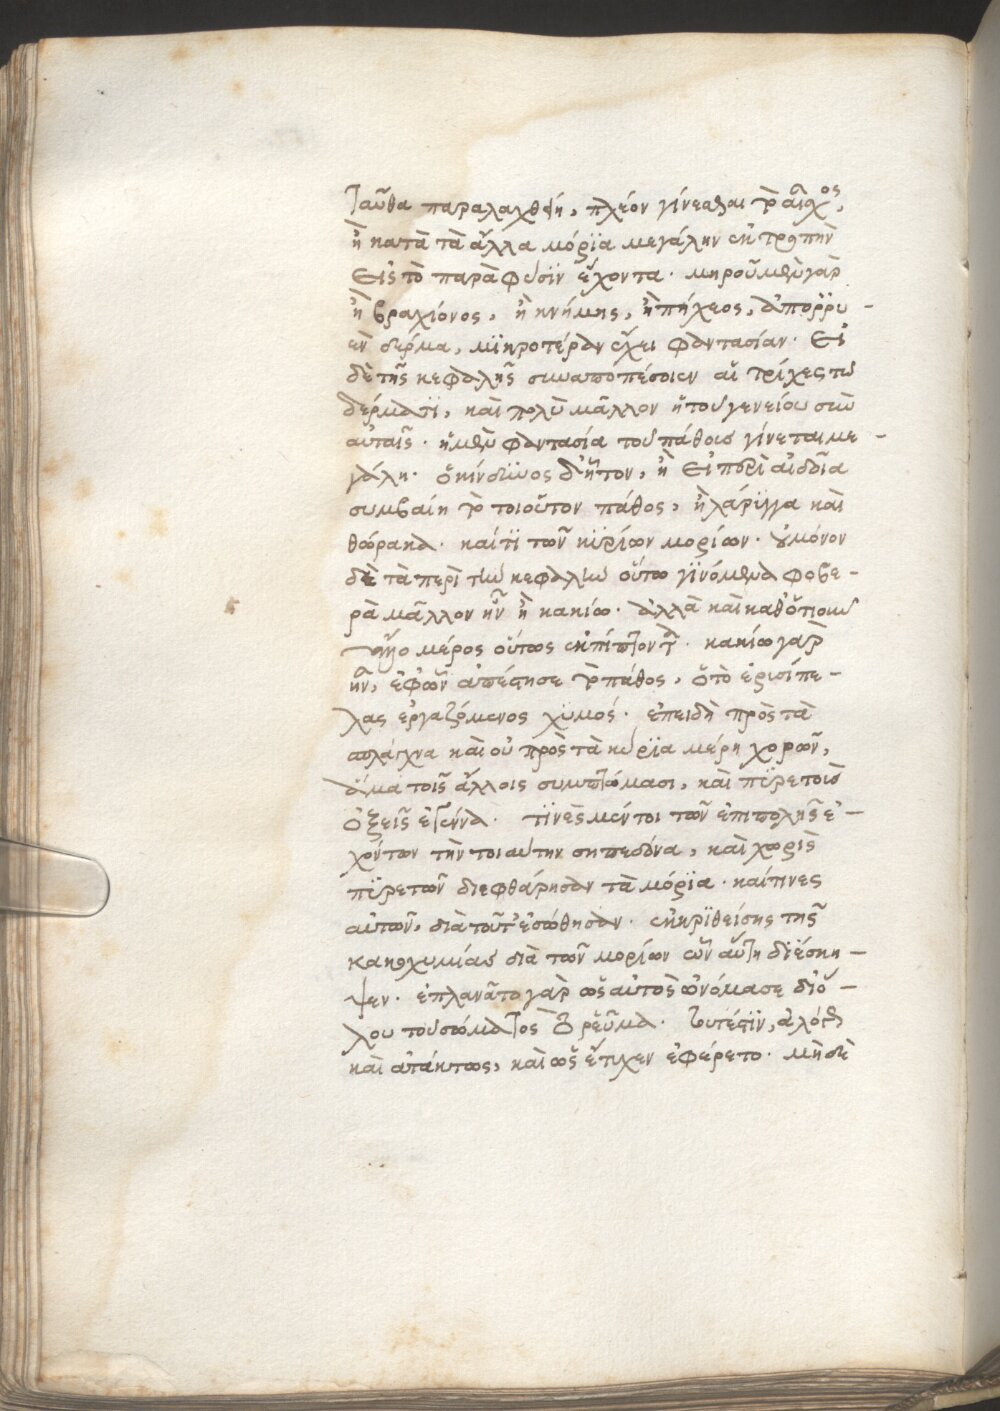 ταῦθα παραλαχθῇ, πλέον γίνεσθαι τὸ αἶσχος,
ἢ κατὰ τὰ ἄλλα μόρϊα μεγάλην ἐκτροπὴν
εἰς τὸ παρὰ φύσϊν ἔχοντα. μηροῦ μὲν γὰρ
ἢ βραχίονος, ἢ κνήμης, ἢ πήχεος, ἀπορρυ-
ὲν δέρμα, μϊκροτέραν ἔχει φαντασίαν. εἰ
δὲ τῆς κεφαλῆς συναποπέσοιεν αἱ τρίχες τῶ
δέρματϊ, καὶ πολὺ μᾶλλον ἢ τοῦ γενείου σὺν
αὐταῖς. ἡ μὲν φαντασία τοῦ πάθους γίνεται με-
γάλη. ὁ κίνδϋνος δ' ἧττον, ἢ εἰ περὶ αἰδοῖα
συμβαίη τὸ τοιοῦτον πάθος, ἢ λάρϋγγα καὶ
θώρακα. καί τϊ τῶν κϋρίων μορίων. οὐ μόνον
δὲ τὰ περὶ τὴν κεφαλὴν οὕτω γϊνόμενα φοβε-
ρὰ μᾶλλον ἦν ἢ κακίω. ἀλλὰ καὶ καθ' ὅτιοῦν
ἄλλο μέρος οὕτως ἐκπίπτοντα. κακίω γὰρ
ἦν, ἐφ' ὧν ἀπέστησε τὸ πάθος, ὁ τὸ ἐρυσίπε-
λας ἐργαζόμενος χϋμός. ἐπειδὴ πρὸς τὰ
σπλάγχνα καὶ οὐ πρὸς τὰ κύρϊα μέρη χορῶν,
ἅμα τοῖς ἄλλοις συμπτώμασι, καὶ πϋρετοὺς
ὀξεῖς ἐγέννα. τϊνὲς μέντοι τῶν ἐπιπολῆς ἐ-
χόντων τὴν τοιαύτην σηπεδόνα, καὶ χωρὶς
πϋρετῶν διεφθάρησαν τὰ μόρϊα. καί τινες
αὐτῶν, διὰ τοῦτ' ἐσώθησαν. ἐκκρϊθείσης τῆς
κακοχυμίας διὰ τῶν μορίων ὧν αὕτη διέσκη-
ψεν. ἐπλανᾶτο γὰρ ὡς αὐτὸς ὠνόμασε δι' ὅ-
λου τοῦ σώματος τὸ ῥεῦμα. τουτέστϊν, ἀλόγως
καὶ ἀτάκτως, καὶ ὡς ἔτυχεν ἐφέρετο. μὴ δὲ